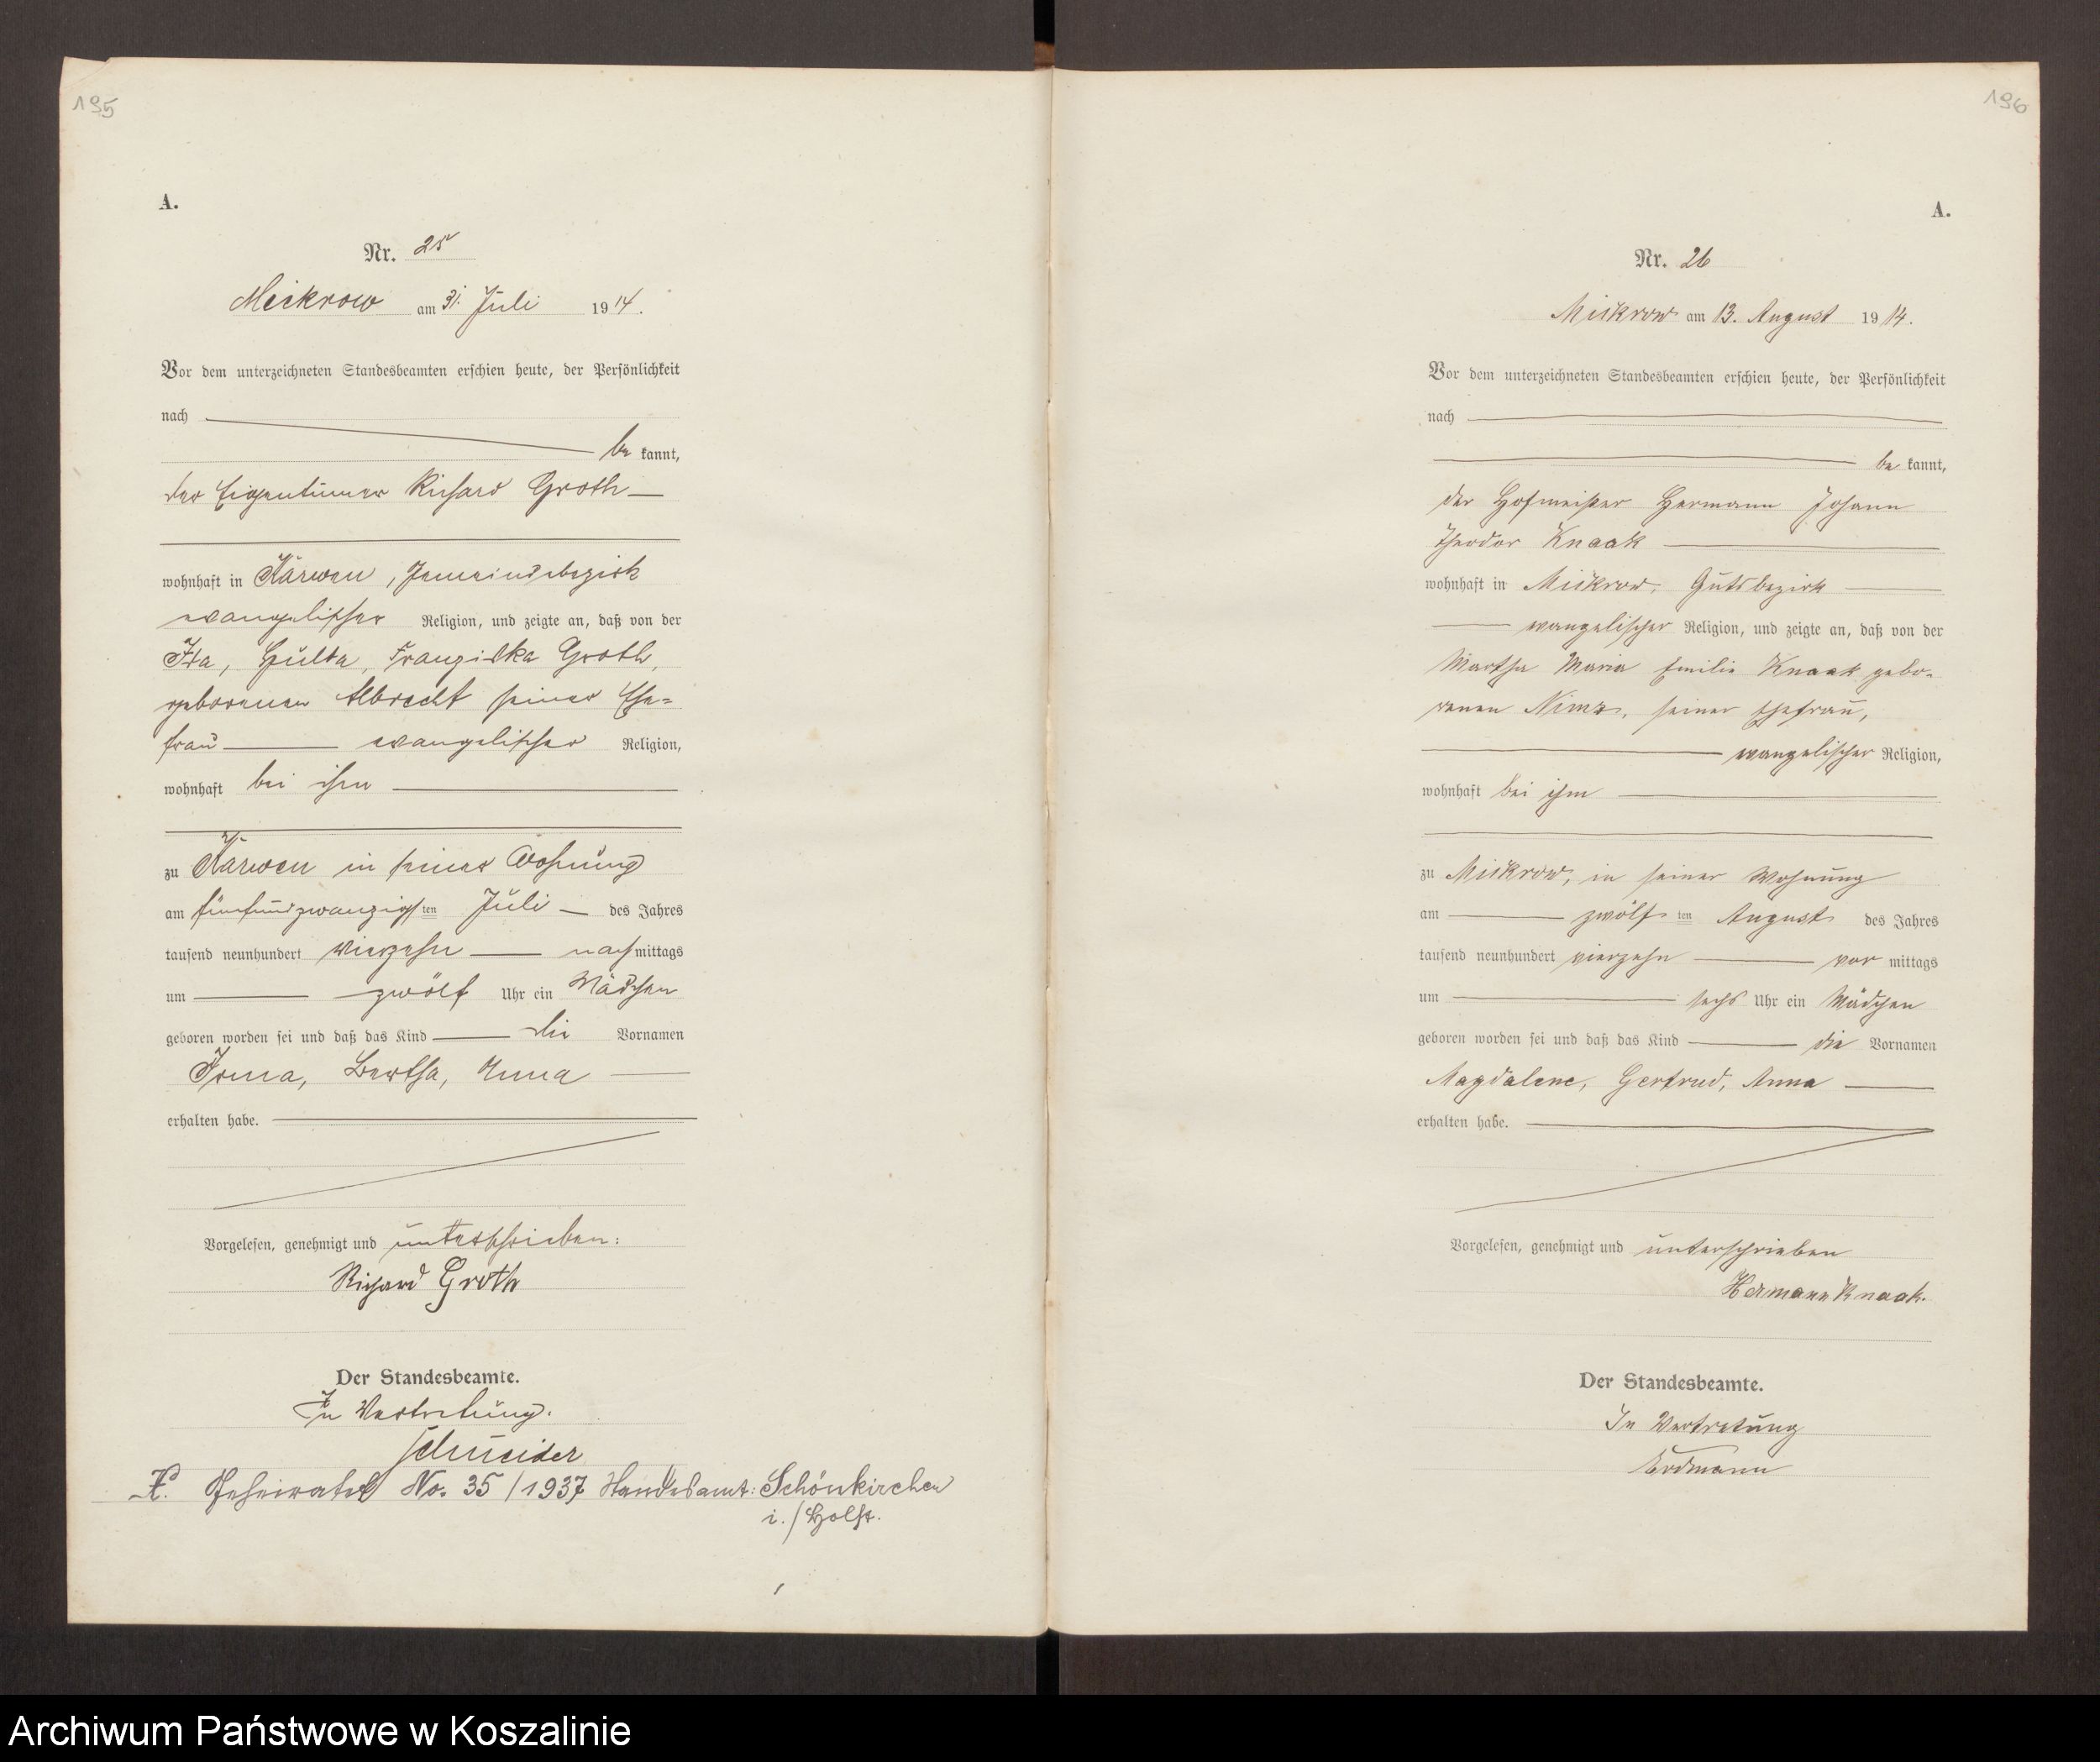 195
A.
Nr. 25
Mickrow am 31. Juli 1914.
Vor dem unterzeichneten Standesbeamten erschien heute, der Persönlichkeit
nach
be kannt,
der Eigentümer Richard Groth
wohnhaft in Karwen, Gemeindebezirk
evangelischer Religion, und zeigte an, daß von der
Ida, Hulda, Franziska Groth,
geborenen Albrecht seiner Ehe=
frau evangelischer Religion,
wohnhaft bei ihm
zu Karwen in seiner Wohnung
am fünfundzwanzigsten Juli des Jahres
tausend neunhundert vierzehn nachmittags
um zwölf Uhr ein Mädchen
geboren worden sei und daß das Kind die Vornamen
Irma, Bertha, Anna
erhalten habe.
Vorgelesen, genehmigt und unterschrieben:
Richard Groth
Der Standesbeamte.
In Vertretung.
Schneider
Geheiratet No. 35/1937 Standesamt: Schönkirchen
i./Holst.
196
A.
Nr. 26
Mickrow am 13. August 1914.
Vor dem unterzeichneten Standesbeamten erschien heute, der Persönlichkeit
nach
be kannt,
der Hofmeister Hermann Johann
Theodor Knaak
wohnhaft in Mickrow, Gutsbezirk
evangelischer Religion, und zeigte an, daß von der
Martha Maria Emilie Knaak gebo-
renen Nimz, seiner Ehefrau,
evangelischer Religion,
wohnhaft bei ihm
zu Mickrow, in seiner Wohnung
am zwölften August des Jahres
tausend neunhundert vierzehn vor mittags
um sechs Uhr ein Mädchen
geboren worden sei und daß das Kind die Vornamen
Magdalene, Gertrud, Anna
erhalten habe.
Vorgelesen, genehmigt und unterschrieben
Hermann Knaak.
Der Standesbeamte.
In Vertretung
Erdmann
Archiwum Państwowe w Koszalinie